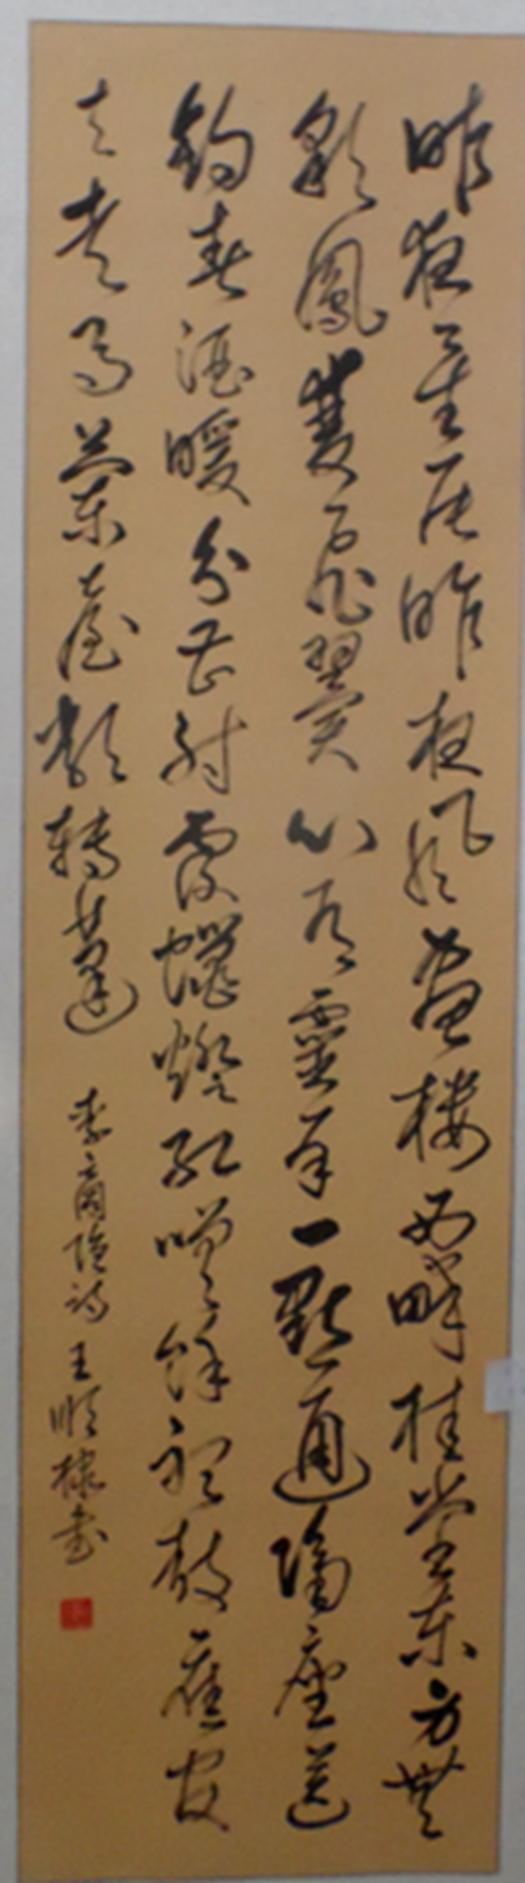 昨夜星辰昨夜風畫楼西畔桂堂东身無
彩鳳雙飛翼心有靈犀一點通隔座送
鈎春酒暖分曹射覆蠟燈紅嗟餘聽鼓應官
去走馬蘭臺類轉蓬 李商隐詩 王順棣書